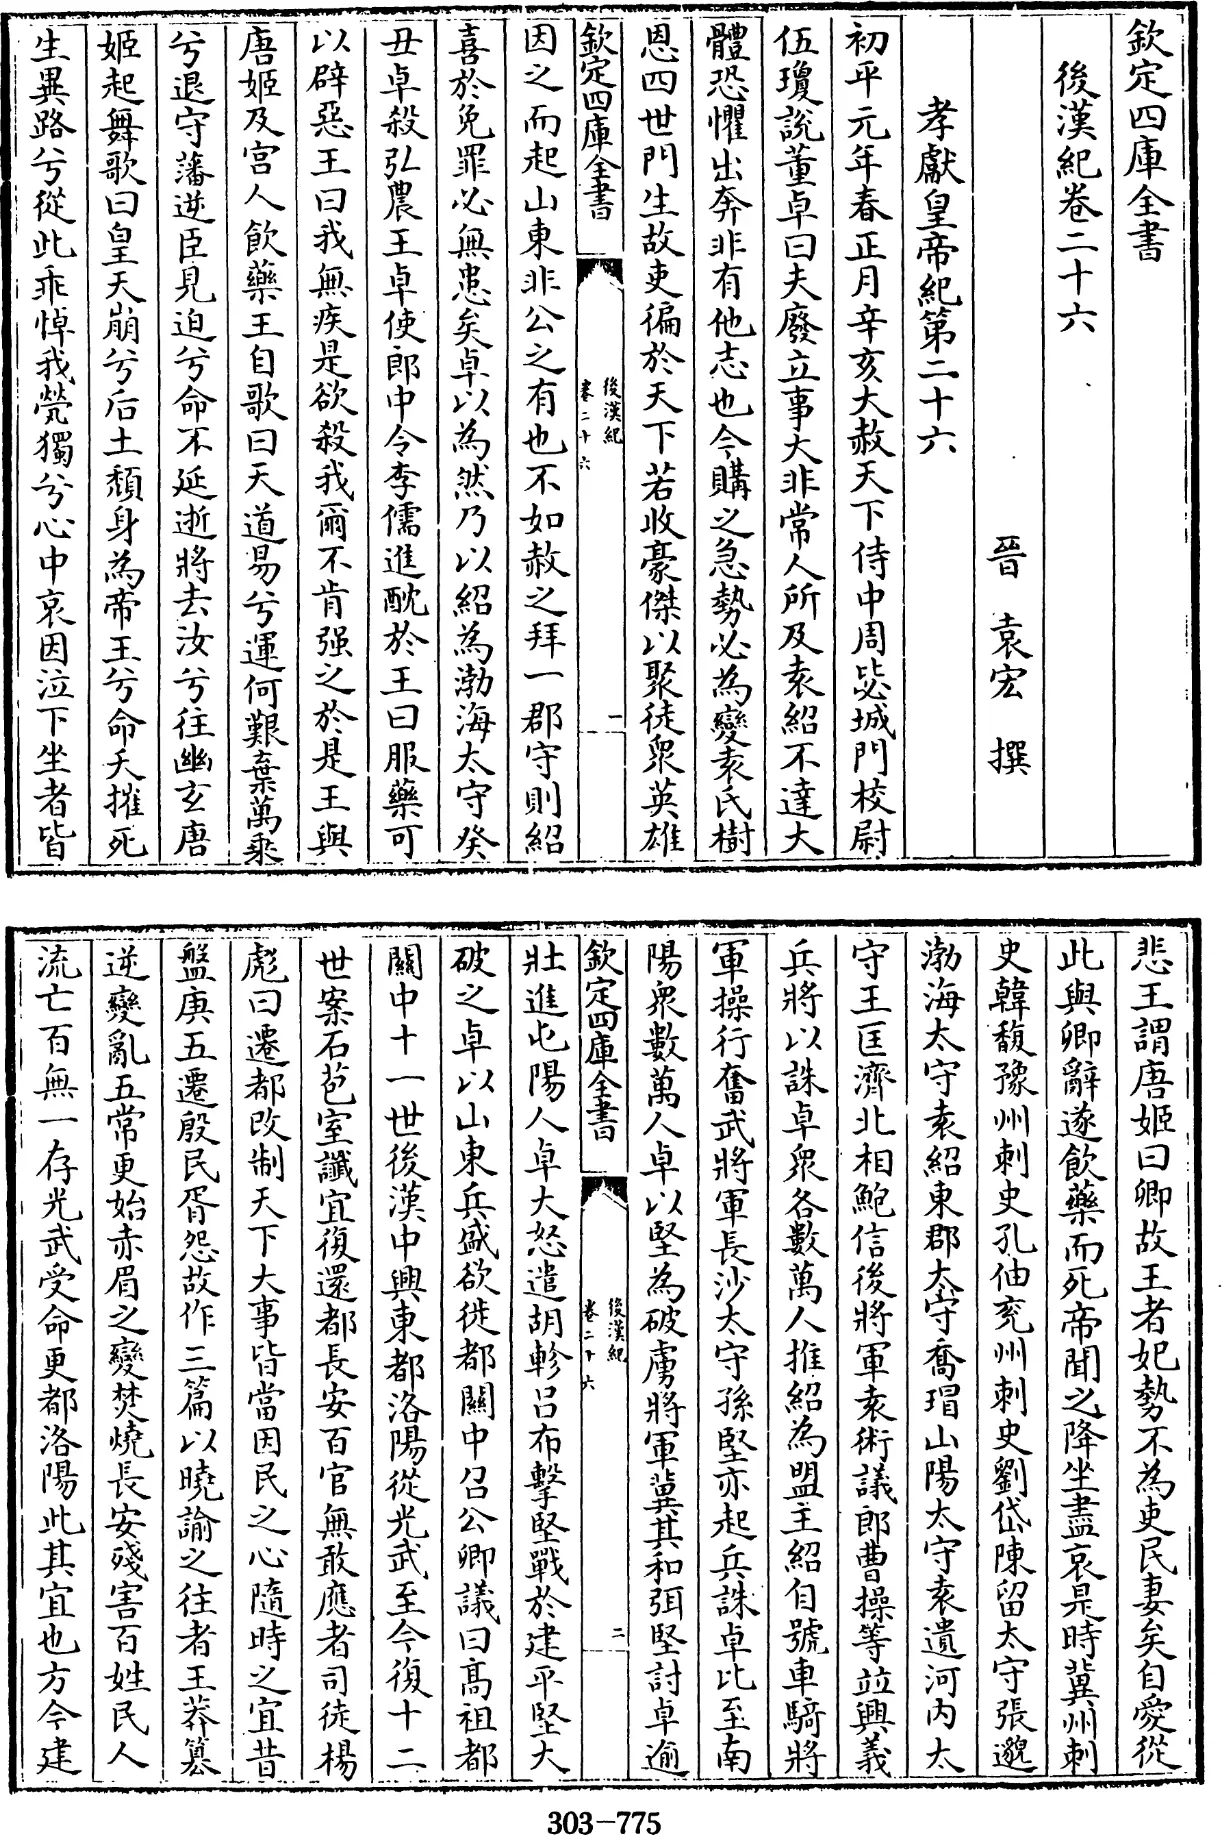 欽定四庫全書
後漢紀卷二十六
晉 袁宏 撰
孝獻皇帝紀第二十六
初平元年春正月辛亥大赦天下侍中周毖城門校尉
伍瓊説董卓曰夫廢立事大非常人所及袁紹不達大
體恐懼出奔非有他志也今購之急勢必為變袁氏樹
恩四世門生故吏徧於天下若收豪傑以聚徒衆英雄
欽定四庫全書
後漢紀
卷二十六
一
因之而起山東非公之有也不如赦之拜一郡守則紹
喜於免罪必無患矣卓以為然乃以紹為渤海太守癸
丑卓殺弘農王卓使郎中令李儒進酖於王曰服藥可
以辟惡王曰我無疾是欲殺我爾不肯强之於是王與
唐姬及宮人飲藥王自歌曰天道易兮運何艱棄萬乘
兮退守藩逆臣見迫兮命不延逝將去汝兮往幽玄唐
姬起舞歌曰皇天崩兮后土頽身為帝王兮命夭摧死
生異路兮從此乖悼我煢獨兮心中哀因泣下坐者皆
悲王謂唐姬曰卿故王者妃勢不為吏民妻矣自愛從
此與卿辭遂飲藥而死帝聞之降坐盡哀是時冀州刺
史韓馥豫州刺史孔伷兖州刺史劉岱陳留太守張邈
渤海太守袁紹東郡太守喬瑁山陽太守袁遺河内太
守王匡濟北相鮑信後將軍袁術議郎曹操等並興義
兵將以誅卓衆各數萬人推紹為盟主紹自號車騎將
軍操行奮武將軍長沙太守孫堅亦起兵誅卓比至南
陽衆數萬人卓以堅為破虜將軍冀其和弭堅討卓逾
欽定四庫全書
後漢紀
卷二十六
二
壯進屯陽人卓大怒遣胡軫吕布擊堅戰於建平堅大
破之卓以山東兵盛欲徙都關中召公卿議曰高祖都
關中十一世後漢中興東都洛陽從光武至今復十二
世案石苞室讖宜復還都長安百官無敢應者司徒楊
彪曰遷都改制天下大事皆當因民之心隨時之宜昔
盤庚五遷殷民胥怨故作三篇以曉諭之往者王莽篡
逆變亂五常更始赤眉之變焚燒長安殘害百姓民人
流亡百無一存光武受命更都洛陽此其宜也方今建
303-775